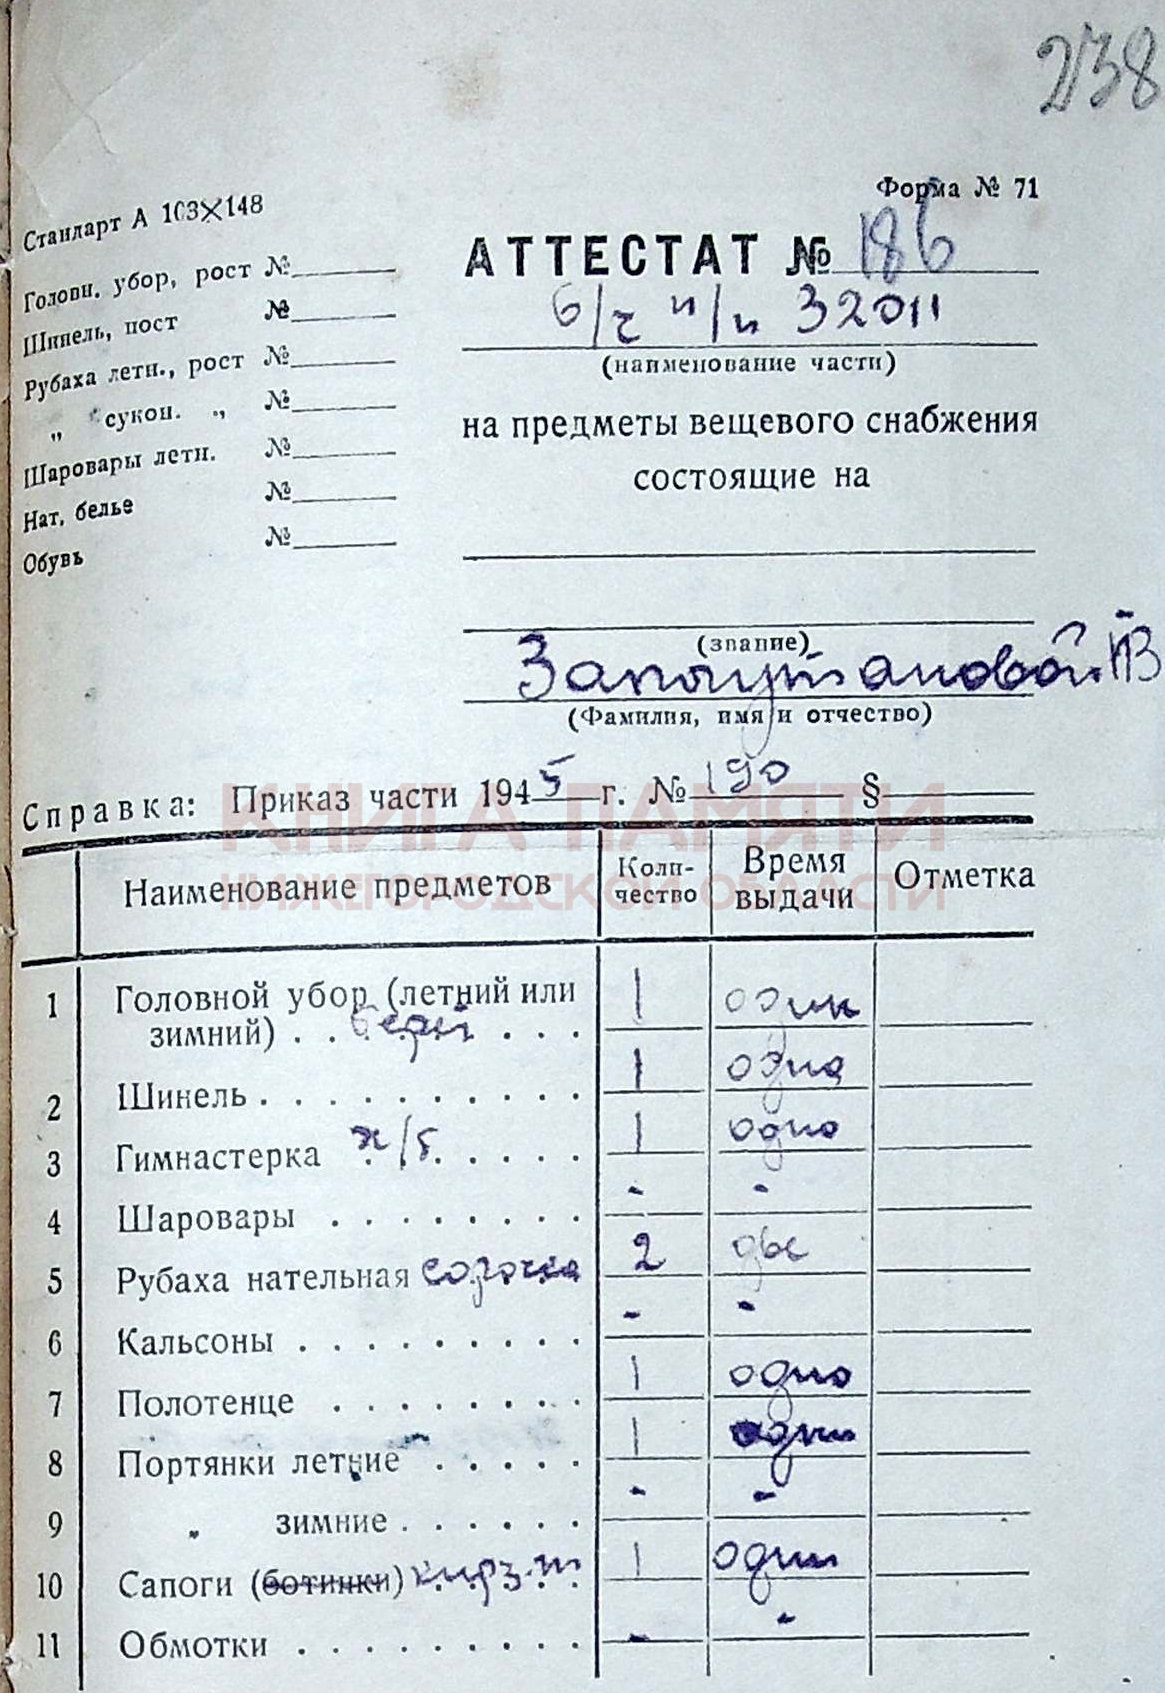 238
Форма № 71
Стандарт А 103×148
Головн. убор, рост №
Шинель, пост №
Рубаха летн., рост №
„ сукон. „ №
Шаровары летн. №
Нат. белье №
Обувь №
АТТЕСТАТ № 186
в/ч п/п 32011
(наименование части)
на предметы вещевого снабжения
состоящие на
(звание)
(Фамилия, имя и отчество)
Справка: Приказ части 1945 г. № 190 §
КНИГА ПАМЯТИ
НИЖЕГОРОДСКОЙ ОБЛАСТИ
Наименование предметов Коли-чество Время выдачи Отметка
1 Головной убор (летний или зимний) . . берет . . . 1 один
2 Шинель . . . . . . . . . . 1 одна
3 Гимнастерка х/б . . . . . 1 одно
4 Шаровары . . . . . . . . - -
5 Рубаха нательная сорочка 2 две
6 Кальсоны . . . . . . . . . - -
7 Полотенце . . . . . . . . 1 одно
8 Портянки летние . . . . . 1 одни
9 „ зимние . . . . . . - -
10 Сапоги (ботинки) кирз. 1 одни
11 Обмотки . . . . . . . . . - -